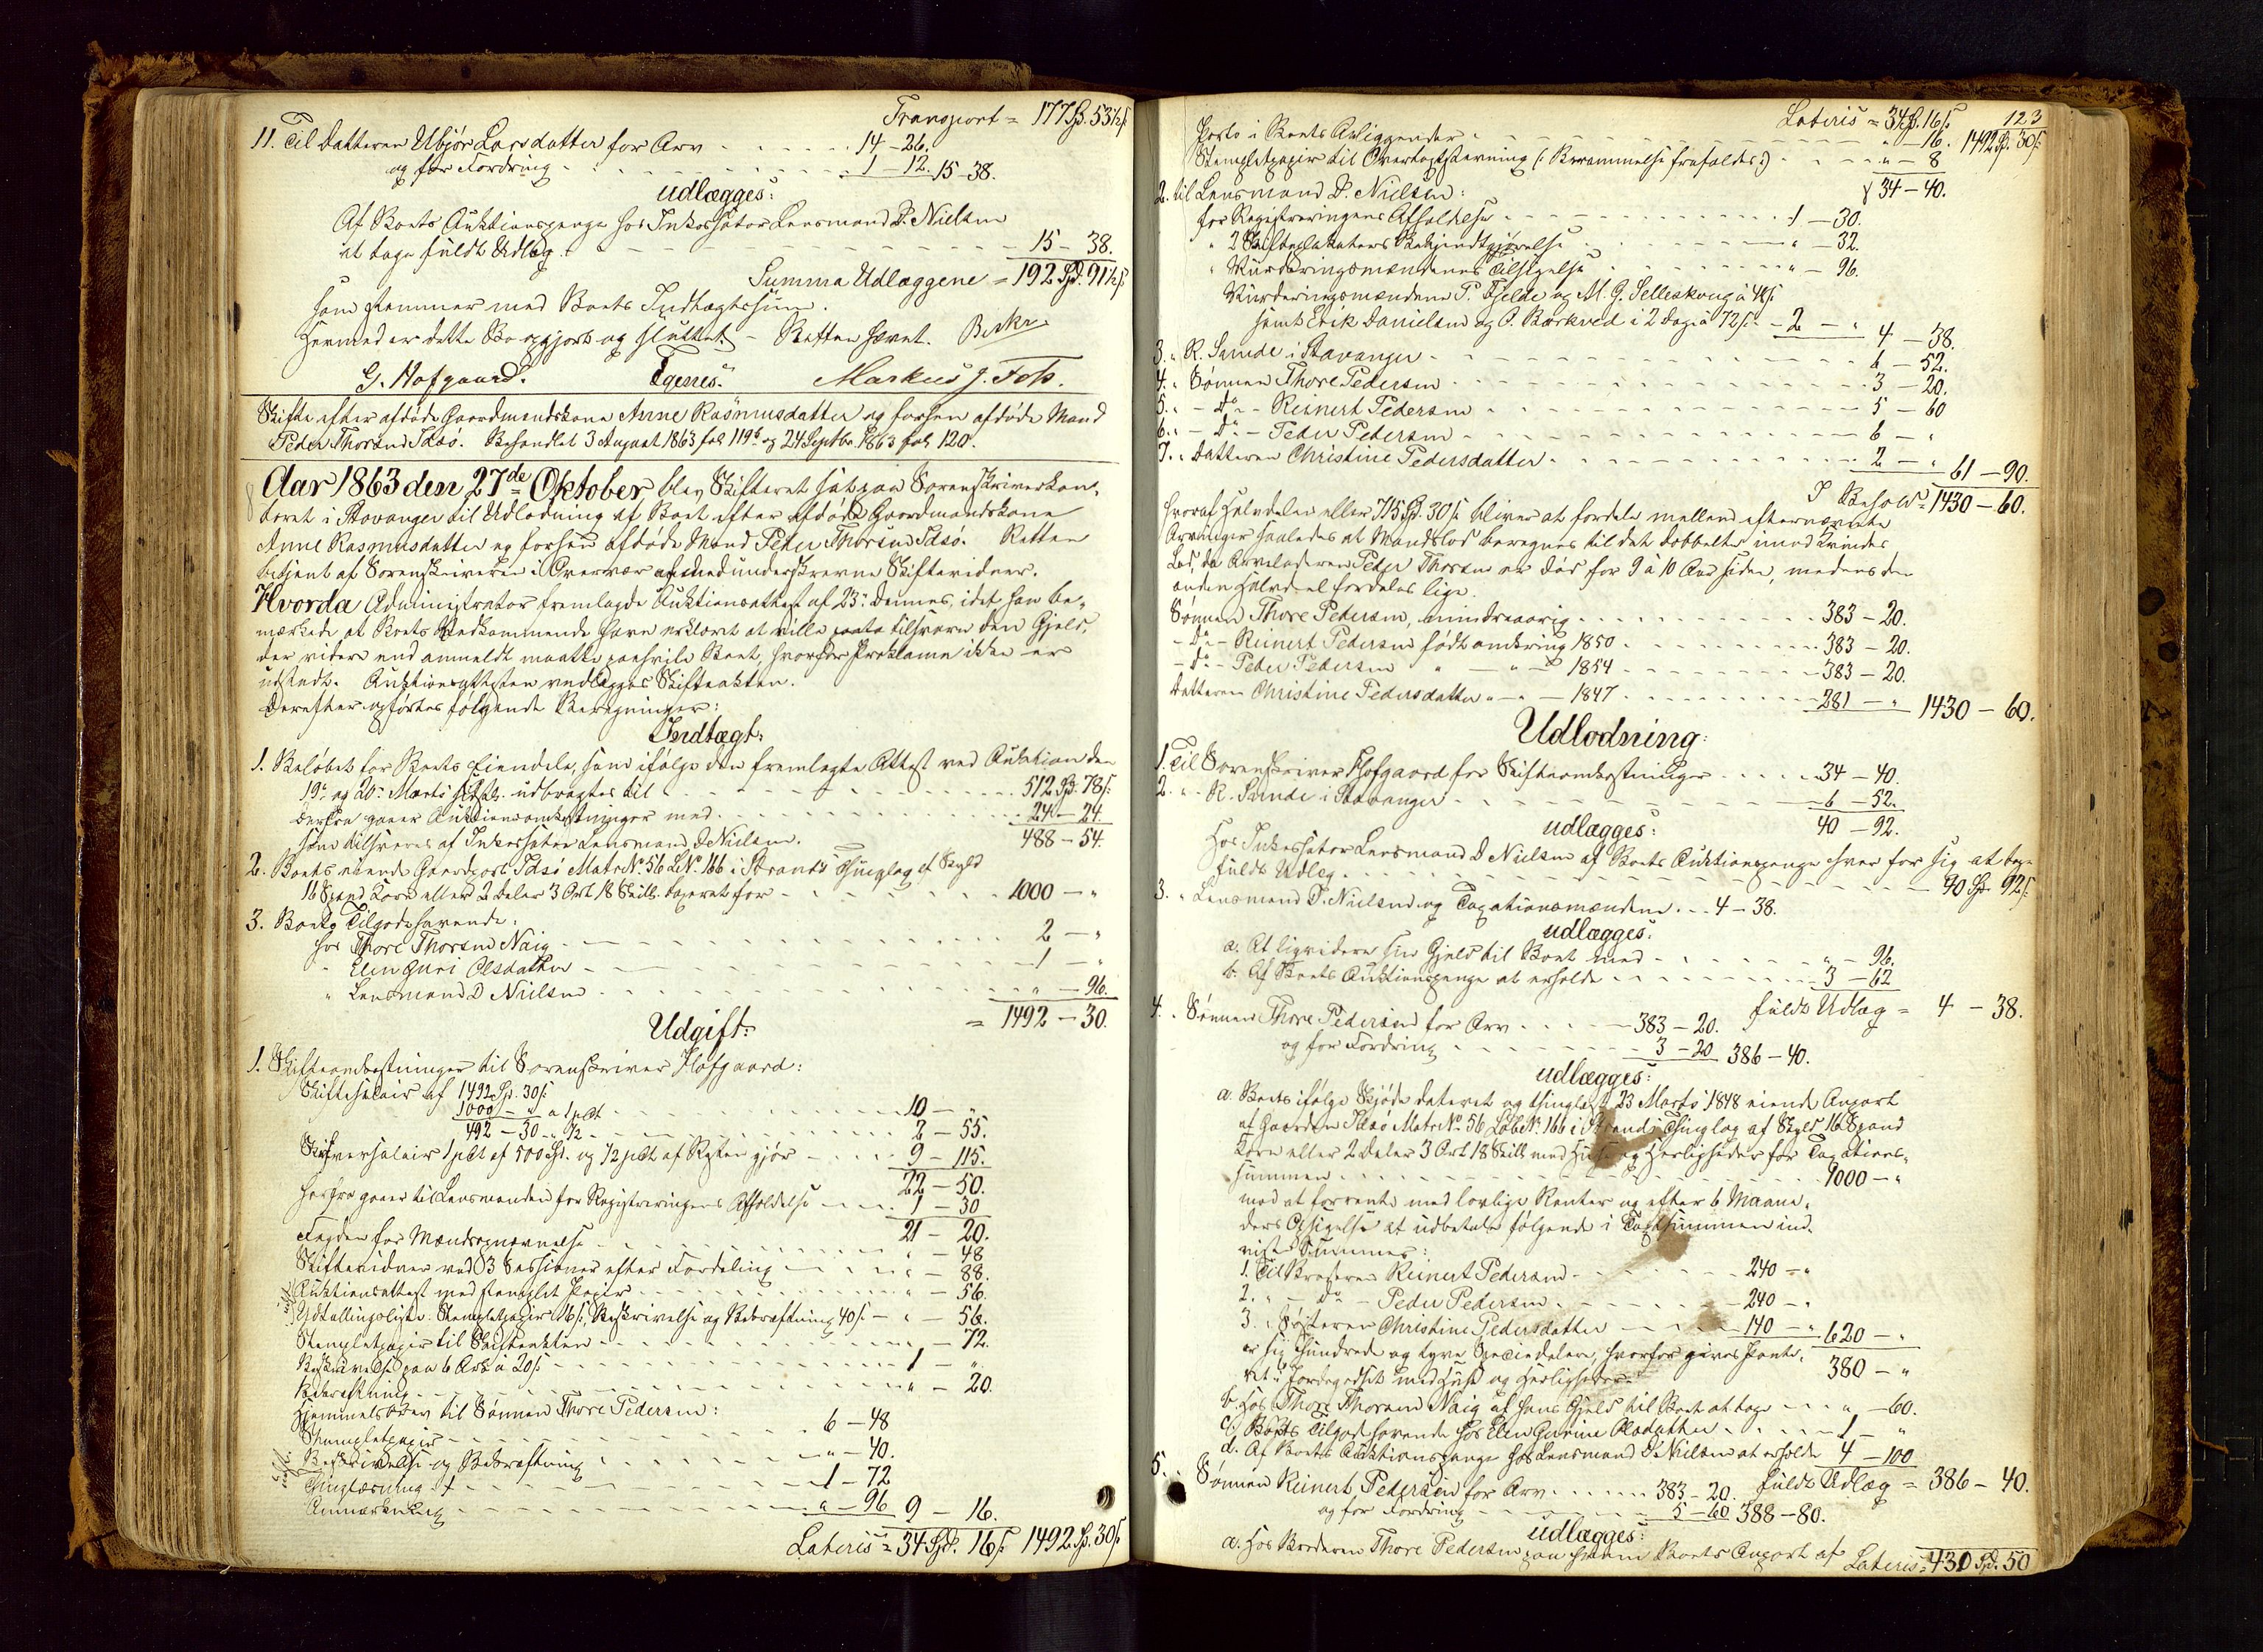 Transport = 177 Spd. 53½ ß
11. Til Datteren Ubjør Larsdatter for Arv 14 - 26.
og for Fordring 1 - 12. 15 - 38.
udlægges:
Af Boets Auktionspenge hos Inkassator Lensmand D. Nielsen
at tage fuldt Udlæg 15 - 38.
Summa Udlæggene = 192 Spd. 91½ ß
som stemmer med Boets Indtægtssum.
Hermed er dette Bo opgjort og sluttet. - Retten hævet.
G. Hofgaard. Tgenes. Markus J. Foss.
Skifte efter afdøde Gaardmandskone Anne Rasmusdatter og forhen afdøde Mand
Peder Thorsen Idsø. Behandlet 3 August 1863 fol 119b og 24 Septbr. 1863 fol 120.
Aar 1863 den 27de Oktober blev Skifteret sat paa Sorenskriverkon-
toret i Stavanger til Udlodning af Boet efter afdøde Gaardmandskone
Anne Rasmusdatter og forhen afdøde Mand Peder Thorsen Idsø. Retten
betjent af Sorenskriveren i Overvær af medunderskrevne Skiftevidner.
Hvorda Administrator fremlagde Auktionsattest af 23de dennes, idet han be-
mærkede at Boets Vedkommende have erklæret at ville tilsvare den Gjeld,
der videre end anmeldt maatte paahvile Boet, hvorfor Proklama ikke er
udstedt. Auktionsattesten vedlægges Skifteakten.
Derefter opførtes følgende Beregninger:
Indtægt:
1. Beløbet for Boets Eiendele, som ifølge den fremlagte Attest ved Auktion den
19de og 20de Marts udbragtes til 512 Spd. 78 ß
Derfra gaaer Auktionsomkostninger med 24 - 24.
som tilsvares af Inkassator Lensmand D Nielsen. 488 - 54.
2. Boets eiende Gaardpart Idsø Matr No. 56 L No. 166 i Strands Thinglag af Skyld
16 Spand Korn eller 2 Daler 3 Ort 18 Skill. taxeret for 1000 - "
3. Boets Tilgodehavende:
hos Thore Thorsen Naig 2 - "
" Elen Guri Olsdatter 1 - "
" Lensmand D Nielsen " - 96.
= 1492 - 30.
Udgift:
1. Skifteomkostninger til Sorenskriver Hofgaard:
Skiftesalair af 1492 Sp. 30 ß
1000 - " a 1 pCt 10 - "
492 - 30 - " ½ 2 - 55.
Skriversalair 1 pCt af 500 Spd. og ½ pCt af Resten gjør 9 - 115.
22 - 50.
herfra gaaer til Lensmanden for Registreringens Afholdelse 1 - 30
21 - 20.
Fogden for Mændsopnævnelse " - 48
Skiftevidner ved 3 Sessioner efter Fordeling " - 88.
Auktionsattest med stemplet Papir " - 56.
Udtællingsliste. Stempletpapir 16 ß, Beskrivelse og Bekræftning 40 ß " - 56.
Stempletpapir til Skifteakten " - 72.
Beskrivelse paa 6 Ark à 20 ß 1 - "
Bekræftning " - 20.
Hjemmelsbrev til Sønnen Thore Pedersen:
Stempletpapir 6 - 48
Beskrivelse og Bekræftning " - 40.
Thinglæsning 1 - 72
Anmærkning " - 96 9 - 16.
Lateris = 34 Spd. 16 ß 1492 Sp. 30 ß
123
Lateris = 34 Sp. 16 ß
1492 Sp. 30 ß
Porto i Boets Anliggender " - 16.
Stempletpapir til Overtaxtstævning (: Berammelse frafaldes :) " - 8
34 - 40.
2. til Lensmand D. Nielsen:
for Registreringens Afholdelse 1 - 30.
" 2 Skifteplakaters Bekjendtgjørelse " - 32.
" Vurderingsmændenes Tilsigelse " - 96.
Vurderingsmændene P. Fjelde og M. G. Selleskoug à
samt Erik Danielsen og O. Barkved i 2 Dage à 72 ß 2 - " 4 - 38.
3. " R. Sunde i Stavanger 6 - 52.
4. " Sønnen Thore Pedersen 3 - 20.
5. " - Do - Reinert Pedersen 5 - 60
6. " - Do - Peder Pedersen 6 - "
7. " Datteren Christine Pedersdatter 2 - " 61 - 90.
I Behold = 1430 - 60.
hvoraf Halvdelen eller 715 Spd. 30 ß bliver at fordele mellem efternævnte
Arvinger saaledes at Mandslod beregnes til det dobbelte imod Kvindes
Lod, da Arveladeren Peder Thorsen er død for 9 à 10 Aar siden, medens den
anden Halvdel fordeles lige.
Sønnen Thore Pedersen, mindreaarig 383 - 20.
- Do - Reinert Pedersen født omkring 1850 383 - 20.
- Do - Peder Pedersen " - " - 1854 383 - 20.
Datteren Christine Pedersdatter " - " - 1847 281 - " 1430 - 60.
Udlodning:
1. Til Sorenskriver Hofgaard for Skifteomkostninger 34 - 40.
2. " R. Sunde i Stavanger 6 - 52.
udlægges: 40 - 92.
Hos Inkassator Lensmand D Nielsen af Boets Auktionspenge hver for sig at tage
fuldt Udlæg 40 Sp. 92 ß
3. " Lensmand D. Nielsen og Taxationsmændene 4 - 38.
udlægges:
a. At liqvidere sin Gjeld til Boet med " - 96.
b. Af Boets Auktionspenge at erholde 3 - 62
fuldt Udlæg = 4 - 38.
4. " Sønnen Thore Pedersen for Arv 383 - 20.
og for Fordring 3 - 20 386 - 40.
udlægges:
a. Boets ifølge Skjøde dateret og thinglæst 23 Marts 1848 eiende Anpart
af Gaarden Idsø Matr No. 56 Løbe No. 166 i Strands Thinglag af Skyld 16 Spand
Korn eller 2 Daler 3 Ort 18 Skill med Huse og Herligheder for Taxations-
summen 1000 - "
mod at forrente med lovlige Renter og efter 6 Maane-
ders Opsigelse at udbetale følgende i Taxtsummen ind-
viste Summer:
1. Til Broderen Reinert Pedersen 240 - "
2. " - Do - Peder Pedersen 240 - "
3. " Søsteren Christine Pedersdatter 140 - " 620 - "
er sex Hundrede og tyve Speciedaler, hvorfor gives Pante- 380 - "
ret i Jordegodset med Huse og Herligheder.
b. Hos Thore Thorsen Naig af hans Gjeld til Boet at tage " - 60.
c. Boets Tilgodehavende hos Elen Gurine Olsdatter 1 - "
d. Af Boets Auktionspenge hos Lensmand D Nielsen at erholde 4 - 100
fuldt Udlæg = 386 - 40.
5. " Sønnen Reinert Pedersen for Arv 383 - 20.
og for Fordring 5 - 60 388 - 80.
udlægges:
a. Hos Broderen Thore Pedersen paa ham Boets Anpart af
Lateris = 431 Spd. 50